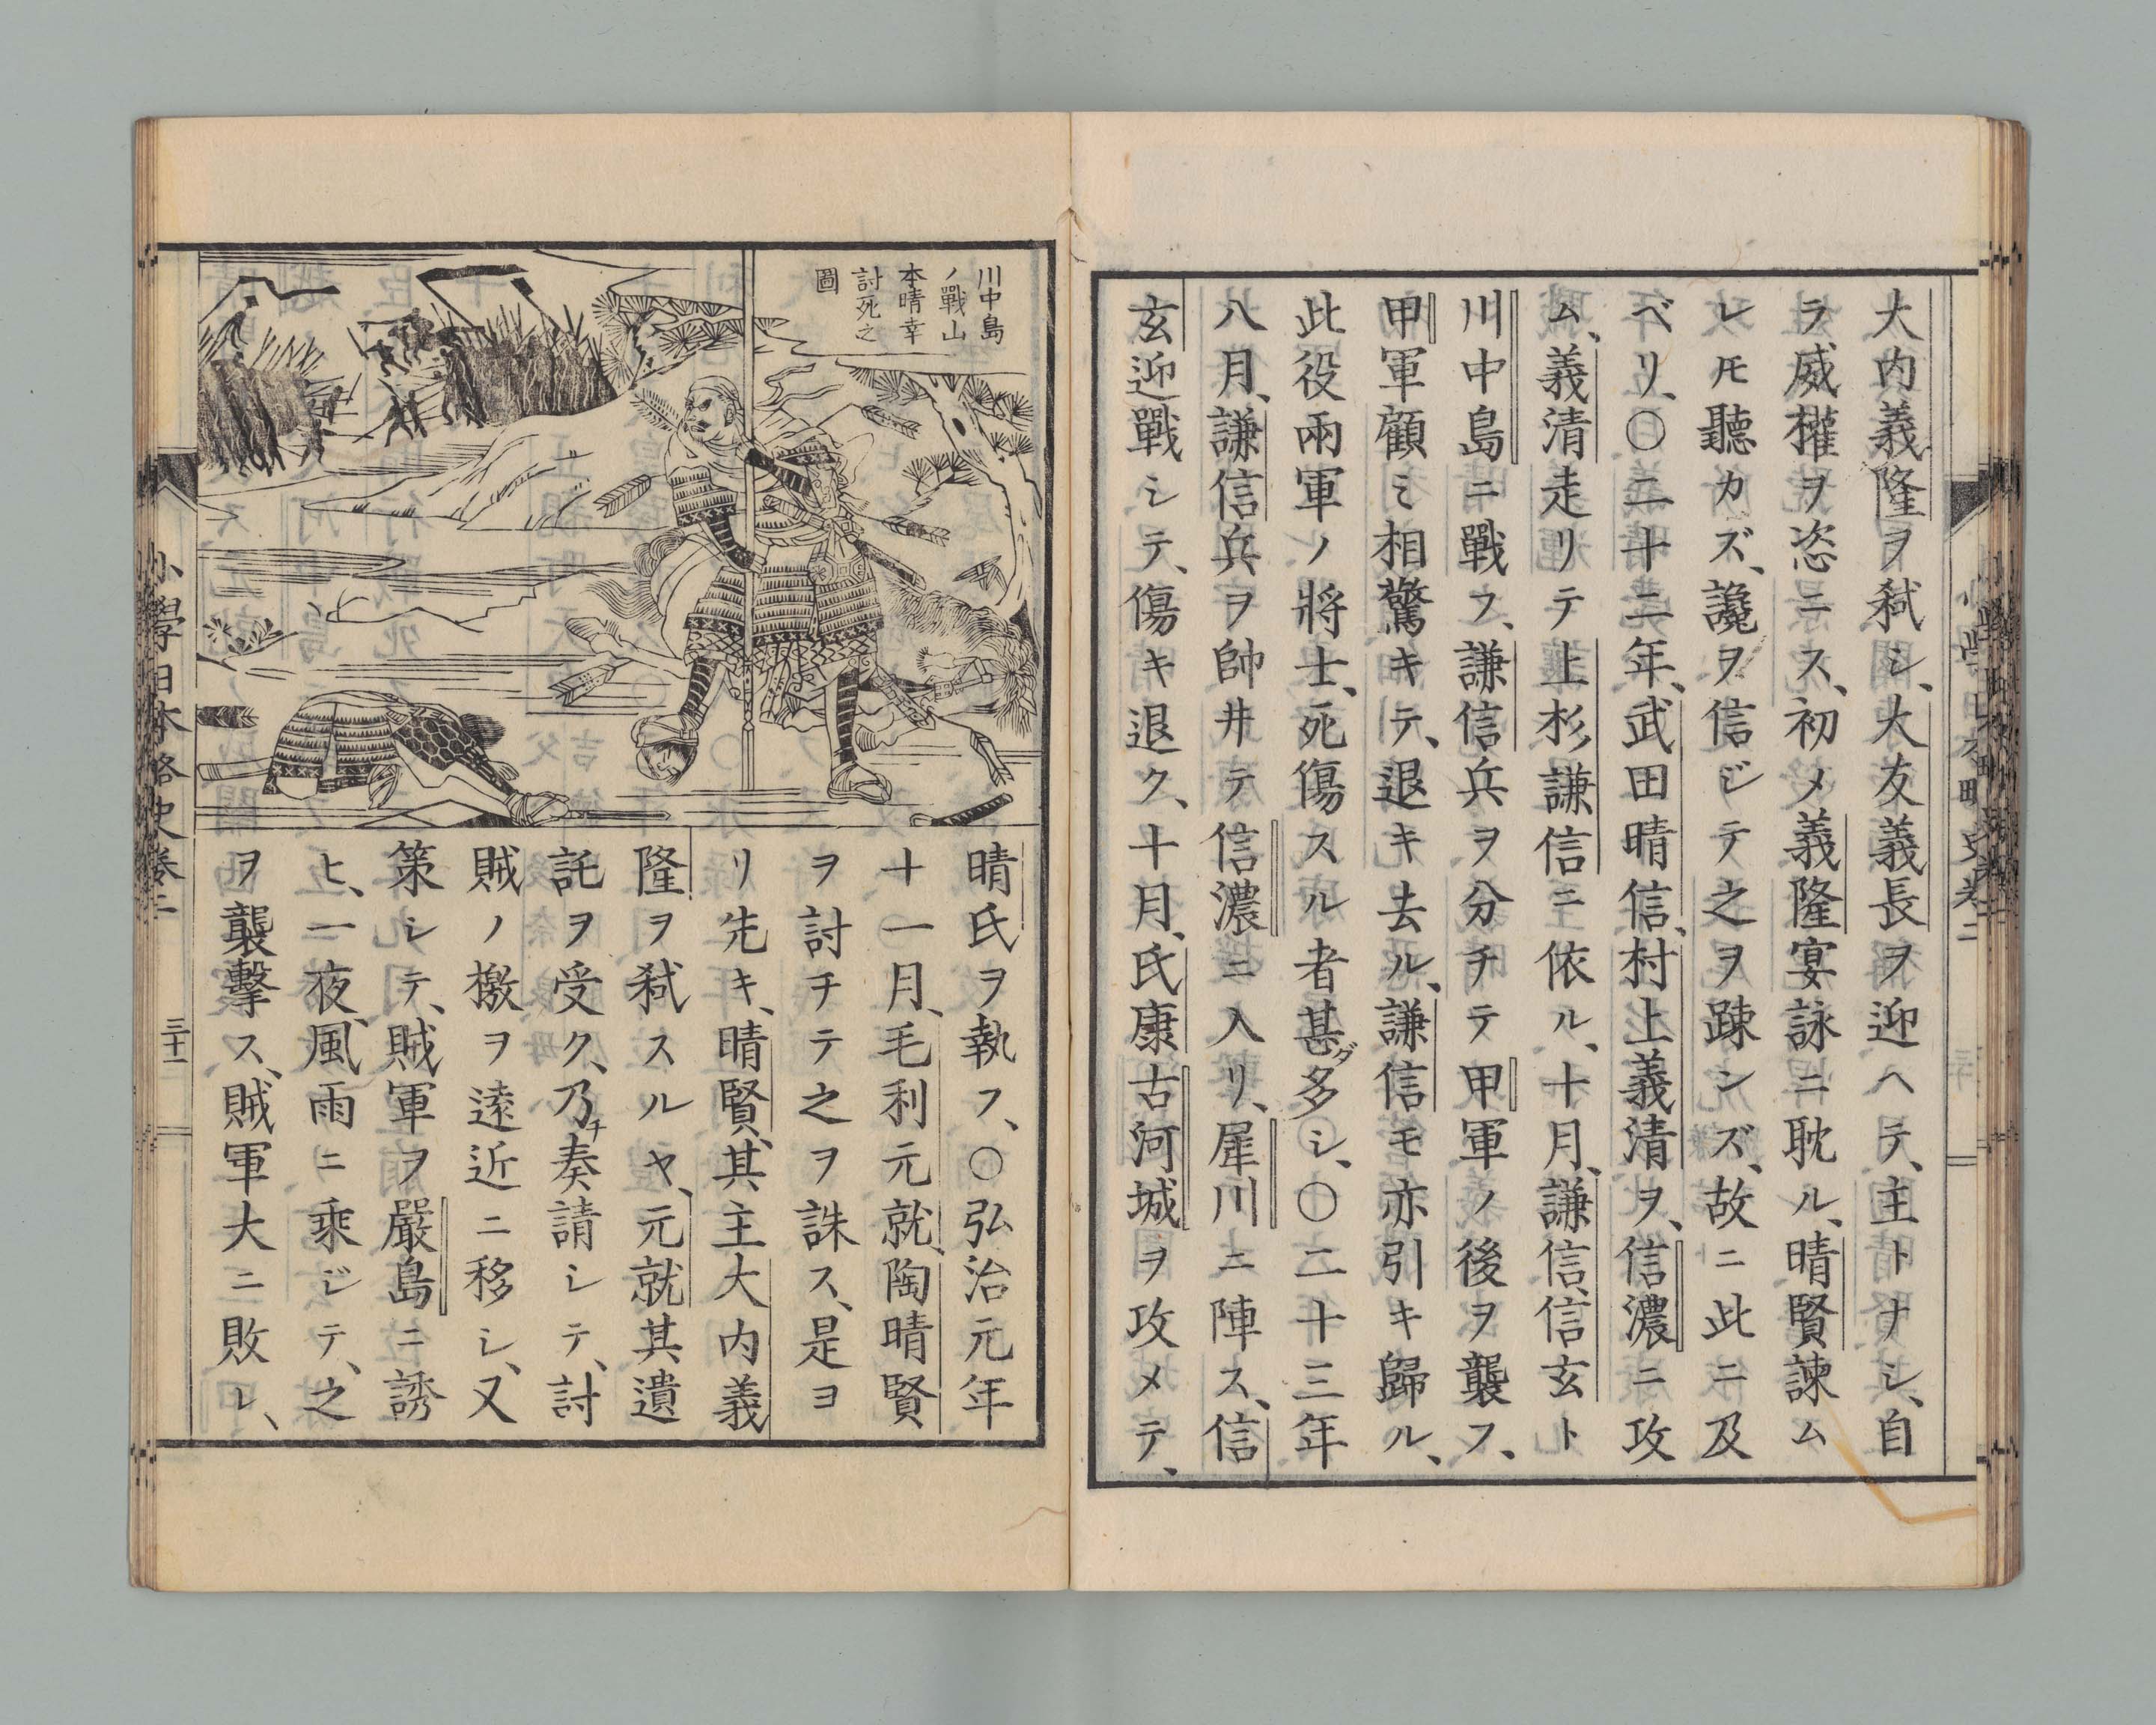 大内義隆ヲ弑シ、大友義長ヲ迎ヘテ、主トナシ、自
ラ威權ヲ恣ニス、初メ義隆宴詠ニ耽ル、晴賢諫ム
レ𪜈聽カズ、讒ヲ信ジテ之ヲ疎ンズ、故ニ此ニ及
ベリ、〇二十二年、武田晴信、村上義清ヲ、信濃ニ攻
ム、義清走リテ上杉謙信ニ依ル、十月、謙信、信玄ト
川中島ニ戰フ、謙信兵ヲ分チテ甲軍ノ後ヲ襲フ、
甲軍顧ミ相驚キテ、退キ去ル、謙信モ亦引キ歸ル、
此役兩軍ノ將士、死傷スル者甚ダ多シ、〇二十三年
八月、謙信兵ヲ帥井テ信濃ニ入リ、犀川ニ陣ス、信
玄迎戰シテ、傷キ退ク、十月、氏康古河城ヲ攻メテ、
川中島
ノ戰山
本晴幸
討死之
圖
晴氏ヲ執フ、〇弘治元年
十一月、毛利元就、陶晴賢
ヲ討チテ之ヲ誅ス、是ヨ
リ先キ、晴賢、其主大内義
隆ヲ弑スルヤ、元就其遺
託ヲ受ク、乃チ奏請シテ、討
賊ノ檄ヲ遠近ニ移シ、又
策シテ、賊軍ヲ嚴島ニ誘
ヒ、一夜、風雨ニ乘ジテ、之
ヲ襲擊ス、賊軍大ニ敗レ、
小學日本略史卷二
三十一